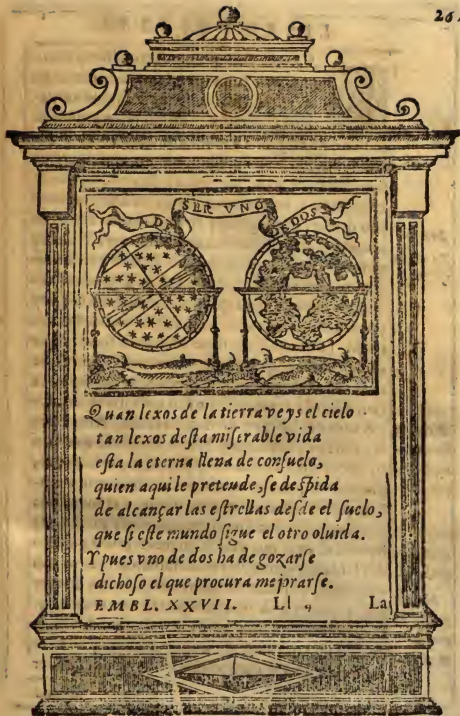 26
A DE SER VNO DE DOS
Quan lexos de la tierra veys el cielo
tan lexos deſta miſerable vida
eſta la eterna llena de conſuelo,
quien aqui le pretende, ſe deſpida
de alcançar las eſtrellas deſde el ſuelo,
que ſi eſte mundo ſigue el otro oluida.
Y pues vno de dos ha de gozarſe
dichoſo el que procura mejorarſe.
EMBL. XXVII. Ll La